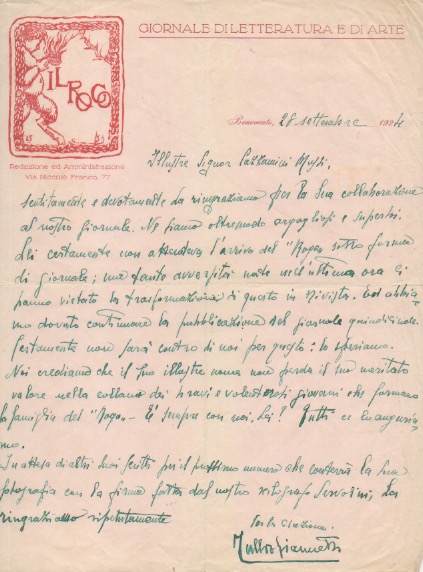 GIORNALE DI LETTERATURA E DI ARTE
IL ROGO
15 53
Redazione ed Amministrazione
Via Niccolò Franco, 77
Benevento, 28 settembre 1924
Illustre Signor
sentitamente e devotamente La ringraziamo per la Sua collaborazione
al nostro giornale. Ne siamo oltremodo orgogliosi e superbi.
Lei certamente non attendeva l'arrivo del "Rogo" sotto forma
di giornale; ma tante avversità nate nell'ultima ora ci
hanno vietato la trasformazione di questo in Rivista. Ed abbia-
mo dovuto continuare la pubblicazione del giornale quindicinale.
Certamente non sarà contro di noi per questo: lo speriamo.
Noi crediamo che il Suo illustre nome non perda il suo meritato
valore nella collana dei bravi e volenterosi giovani che formano
la famiglia del "Rogo" - È sempre con noi, Lei? Tutti ce lo auguria-
mo.
In attesa di altri Suoi scritti per il prossimo numero che conterrà la Sua
fotografia con la firma fatta dal nostro xilografo Servolini, La
ringraziamo ripetutamente
Per la Direzione
Giannetti